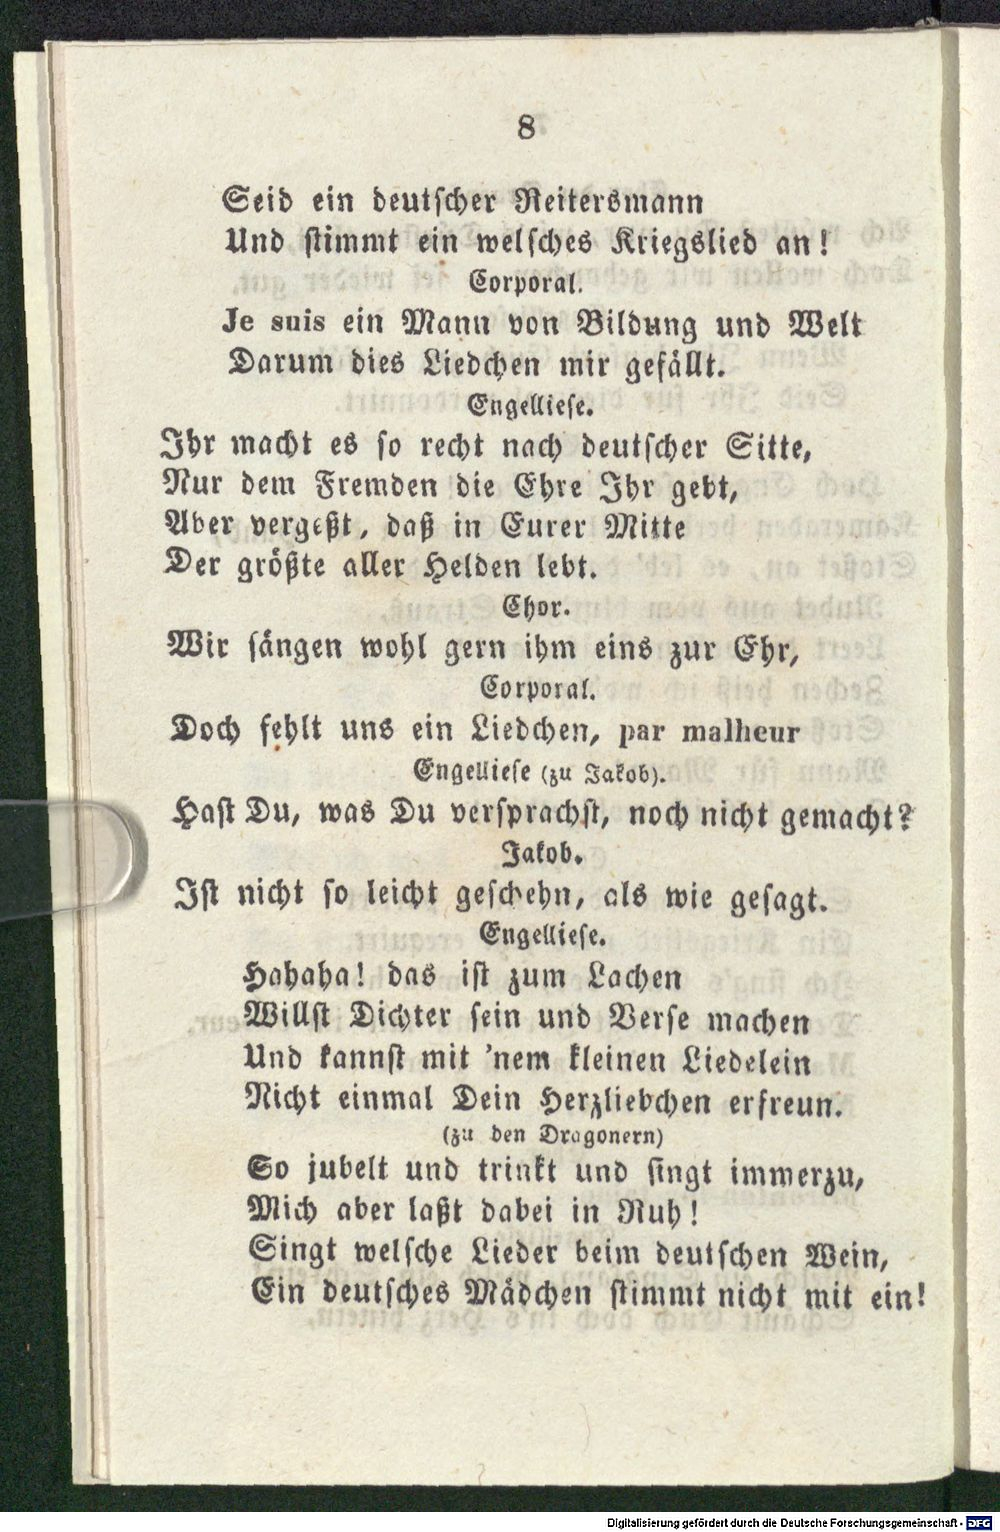 8
Seid ein deutscher Reitersmann
Und stimmt ein welsches Kriegslied an!
Corporal.
Je suis ein Mann von Bildung und Welt
Darum dies Liedchen mir gefällt.
Engelliese.
Ihr macht es so recht nach deutscher Sitte,
Nur dem Fremden die Ehre Ihr gebt,
Aber vergeßt, daß in Eurer Mitte
Der größte aller Helden lebt.
Chor.
Wir sängen wohl gern ihm eins zur Ehr,
Corporal.
Doch fehlt uns ein Liedchen, par malheur
Engelliese (zu Jakob).
Hast Du, was Du versprachst, noch nicht gemacht?
Jakob.
Ist nicht so leicht geschehn, als wie gesagt.
Engelliese.
Hahaha! das ist zum Lachen
Willst Dichter sein und Verse machen
Und kannst mit 'nem kleinen Liedelein
Nicht einmal Dein Herzliebchen erfreun.
(zu den Dragonern)
So jubelt und trinkt und singt immerzu,
Mich aber laßt dabei in Ruh!
Singt welsche Lieder beim deutschen Wein,
Ein deutsches Mädchen stimmt nicht mit ein!
Digitalisierung gefördert durch die Deutsche Forschungsgemeinschaft - DFG